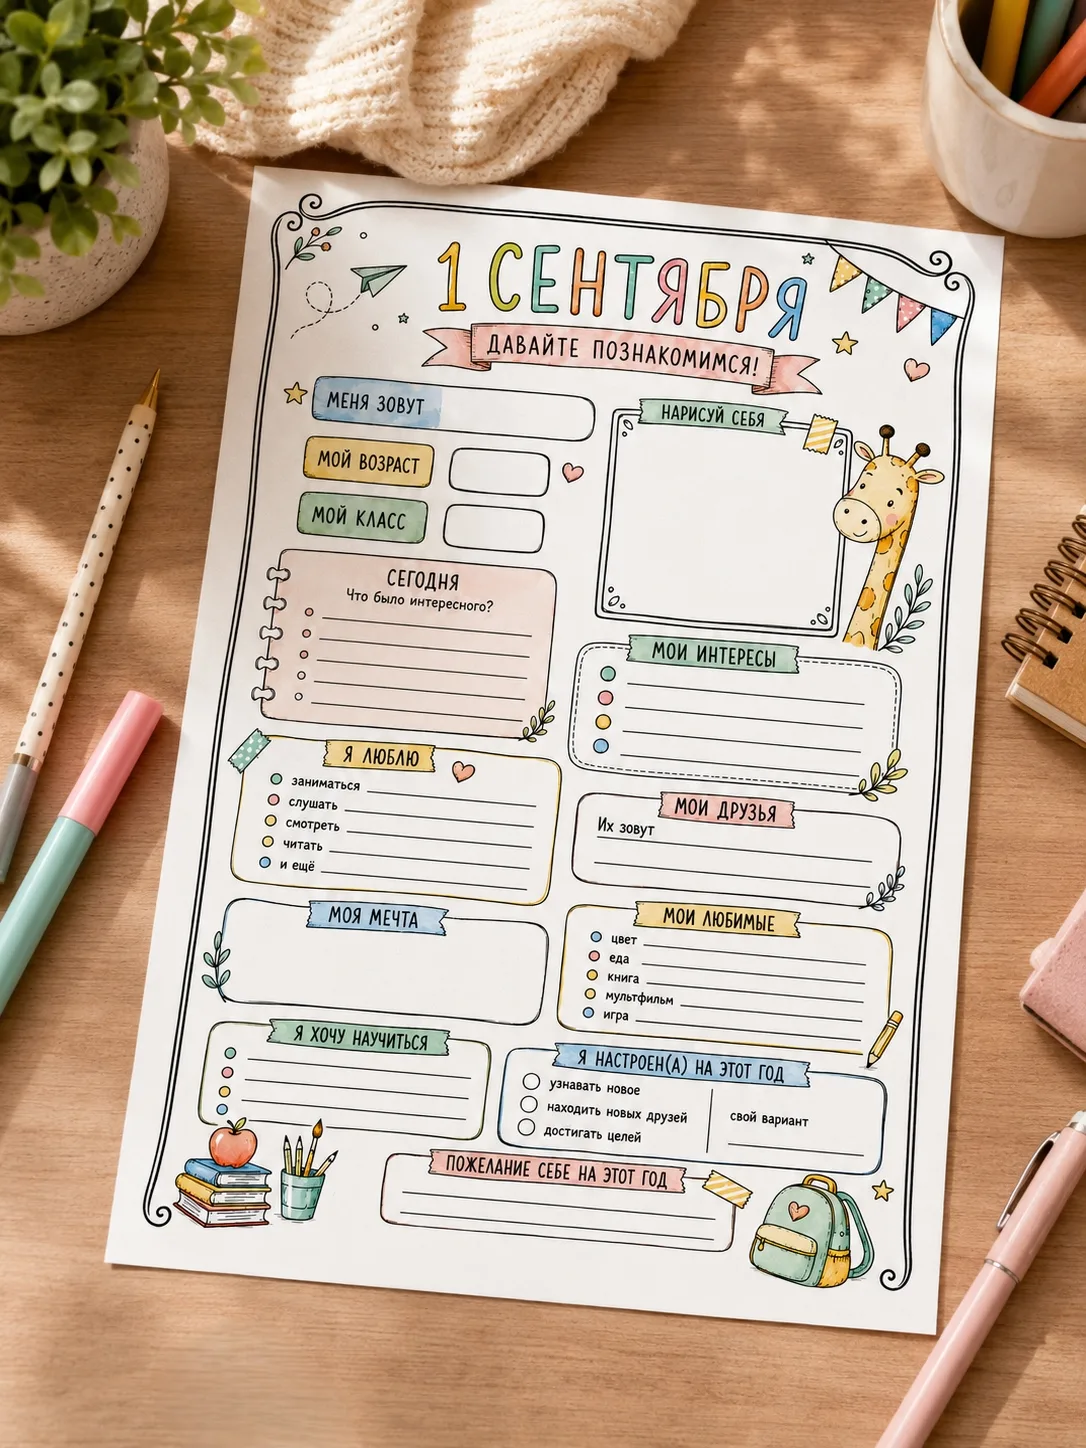 1 СЕНТЯБРЯ
ДАВАЙТЕ ПОЗНАКОМИМСЯ!
МЕНЯ ЗОВУТ
МОЙ ВОЗРАСТ
МОЙ КЛАСС
НАРИСУЙ СЕБЯ
СЕГОДНЯ
Что было интересного?
МОИ ИНТЕРЕСЫ
Я ЛЮБЛЮ
заниматься
слушать
смотреть
читать
и ещё
МОИ ДРУЗЬЯ
Их зовут
МОЯ МЕЧТА
МОИ ЛЮБИМЫЕ
цвет
еда
книга
мультфильм
игра
Я ХОЧУ НАУЧИТЬСЯ
Я НАСТРОЕН(А) НА ЭТОТ ГОД
узнавать новое
находить новых друзей
достигать целей
свой вариант
ПОЖЕЛАНИЕ СЕБЕ НА ЭТОТ ГОД